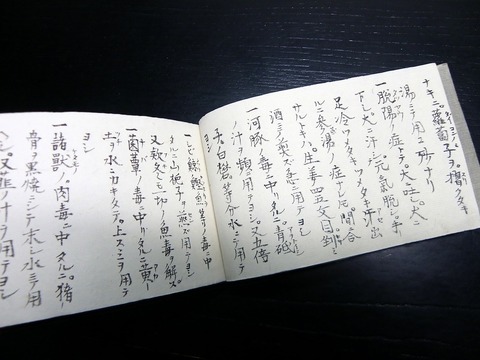 ナキニ。蘿蔔子ヲ。摺クダキ
湯ニテ用ユ妙ナリ
一脱陽ノ症トテ。大ニ吐シ。大ニ
下シ。大ニ汗シテ。元氣脱シ。手
足冷ツメタキツメタキ汗ナド出
ルハ参湯ノ症ナレ𪜈。間ニ合
サルトキハ。生姜四五文目剉
酒ニテ煎ズ急ニ用テヨシ
一河豚ノ毒ニ中リタルニ。青砥
ノ汁ヲ頻用テヨシ。又五倍
子。白礬。等分水ニテ用テ
ヨシ
等ノ毒ニ中
タルニ山梔子ヲ煎ズ用テヨシ
又款冬モ一切ノ魚毒ヲ解ス
一菌蕈ノ毒ニ中リタルニ黄
土ヲ水ニカキタテ。上スミヲ用テ
ヨシ
一諸獣ノ肉毒ニ中タルニ。猪ノ
骨ヲ黒焼ニシテ末シ水ニテ用
ヘシ。又韮ノ汁ヲ用テヨシ